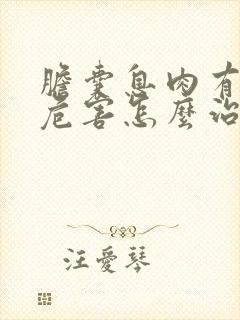 膽囊息肉有
危害怎麼治
汪愛琴